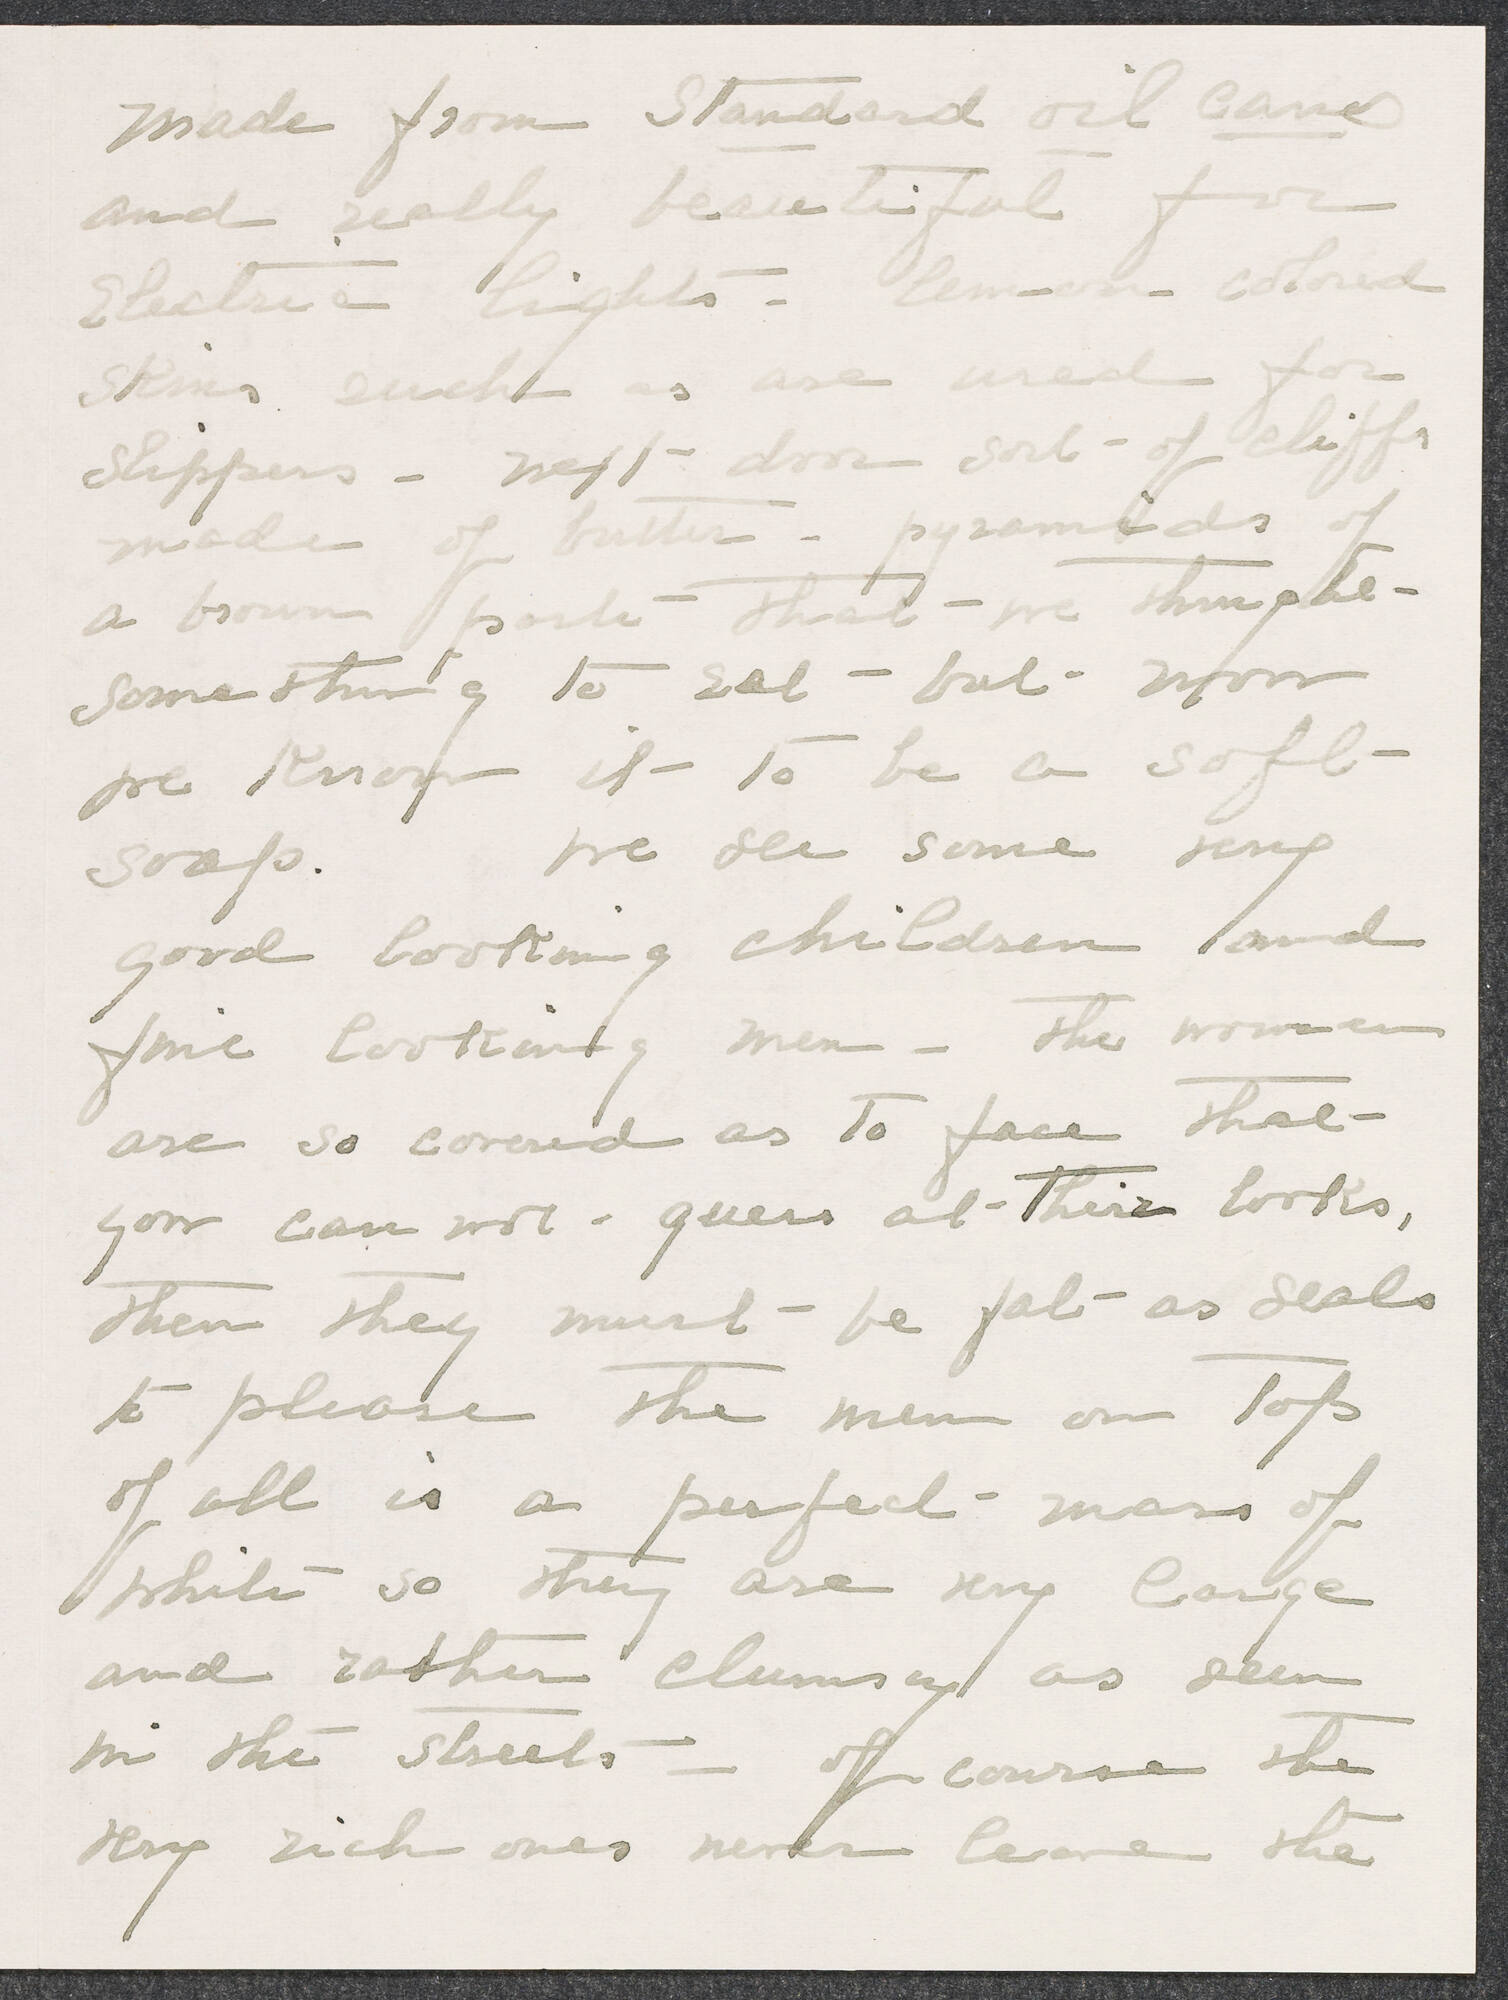 made from Standard oil cans
and really beautiful for
Electric lights - lemon colored
skins such as are used for
slippers - next door sort of cliffs
made of butter - pyramids of
a brown paste that we thought
something to eat - but now
we know it to be a soft
soap. We see some very
good looking children and
fine looking men - the women
are so covered as to face that
you can not guess at their looks,
then they must be fat as seals
to please the men on top
of all is a perfect mass of
white so they are very large
and rather clumsy as seen
in the streets - of course the
very rich ones never leave the